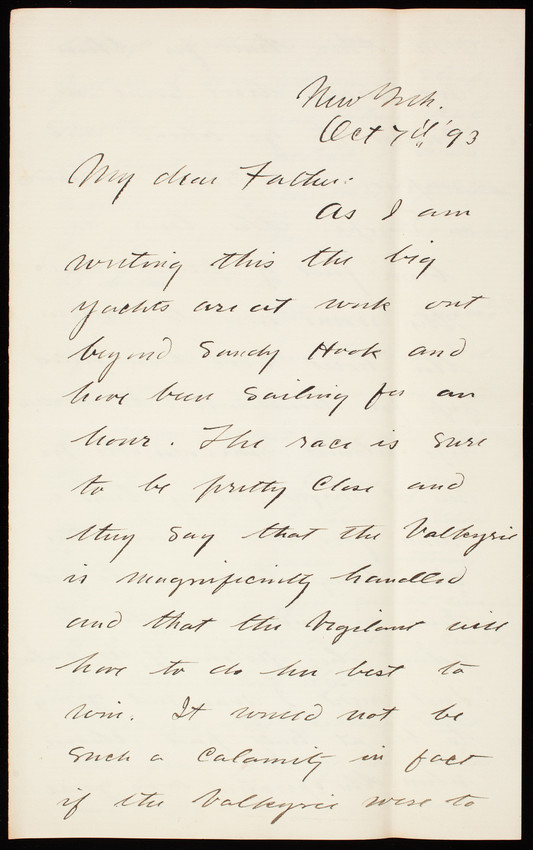 New York.
Oct 7th '93
My dear Father:
As I am
writing this the big
yachts are at work out
beyond Sandy Hook and
have been sailing for an
hour. The race is sure
to be pretty close and
they say that the Valkyrie
is magnificintly handled
and that the Vigilant will
have to do her best to
win. It would not be
such a calamity in fact
if the Valkyrie were to